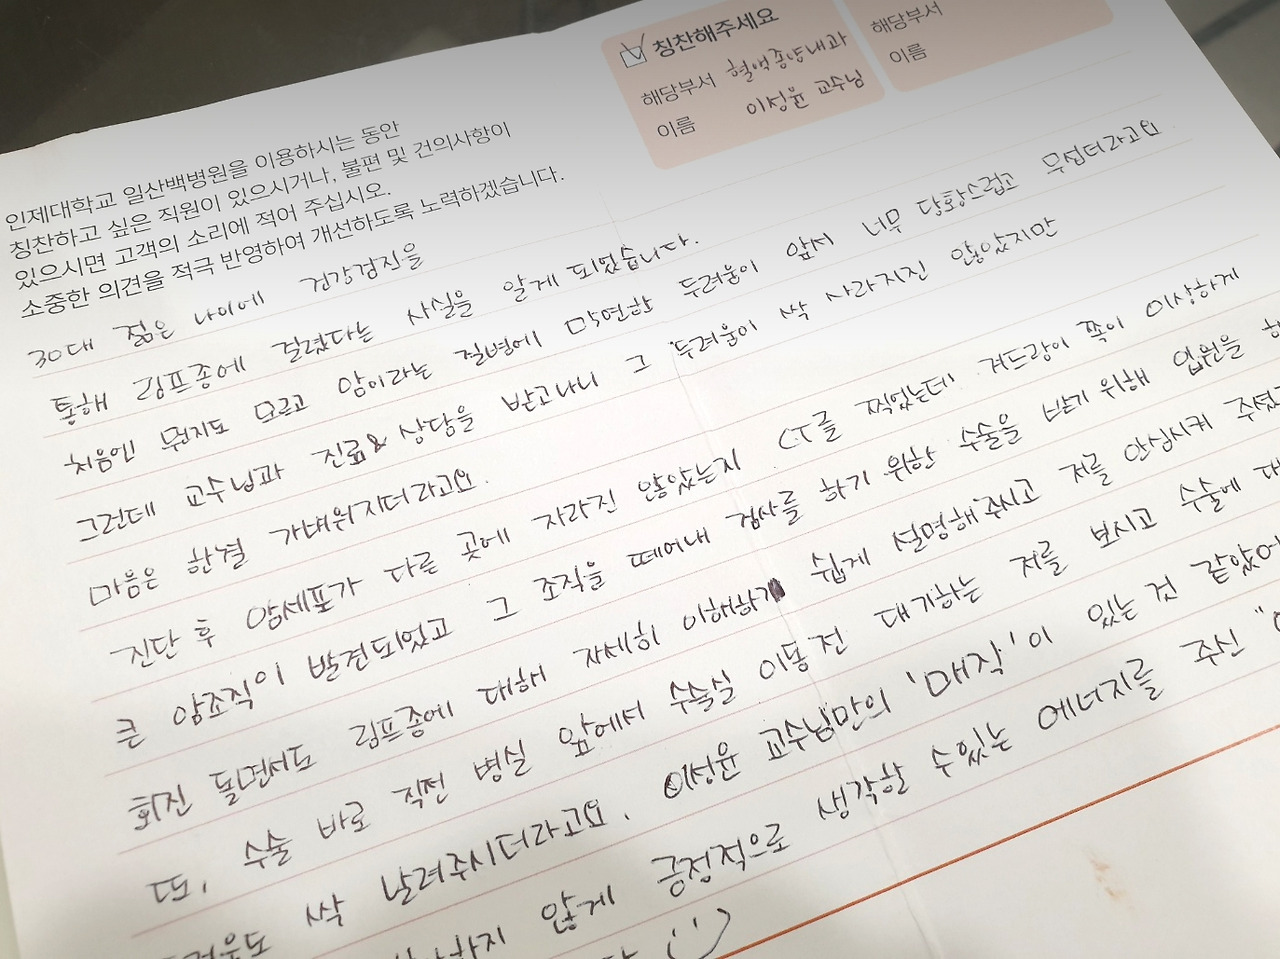 칭찬해주세요
해당부서 혈액종양내과
이름 이성윤 교수님
해당부서
이름
인제대학교 일산백병원을 이용하시는 동안
칭찬하고 싶은 직원이 있으시거나, 불편 및 건의사항이
있으시면 고객의 소리에 적어 주십시오.
소중한 의견을 적극 반영하여 개선하도록 노력하겠습니다.
30대 젊은 나이에 건강검진을
통해 림프종에 걸렸다는 사실을 알게 되었습니다.
처음엔 뭔지도 모르고 암이라는 질병에 막연한 두려움이 앞서 너무 당황스럽고 무섭더라고요.
그런데 교수님과 진료 & 상담을 받고나니 그 두려움이 싹 사라지진 않았지만
마음은 한결 가벼워지더라고요.
진단 후 암세포가 다른 곳에 자라진 않았는지 CT를 찍었는데 겨드랑이 쪽이 이상하게
큰 암조직이 발견되었고 그 조직을 떼어내 검사를 하기 위한 수술을 받기 위해 입원을
회진 돌면서도 림프종에 대해 자세히 이해하기 쉽게 설명해주시고 저를 안심시켜
또, 수술 바로 직전 병실 앞에서 수술실 이동 전 대기하는 저를 보시고 수술에
싹 날려주시더라고요. 이성윤 교수님만의 '매직'이 있는 것
않게 긍정적으로 생각할 수 있는 에너지를 주신